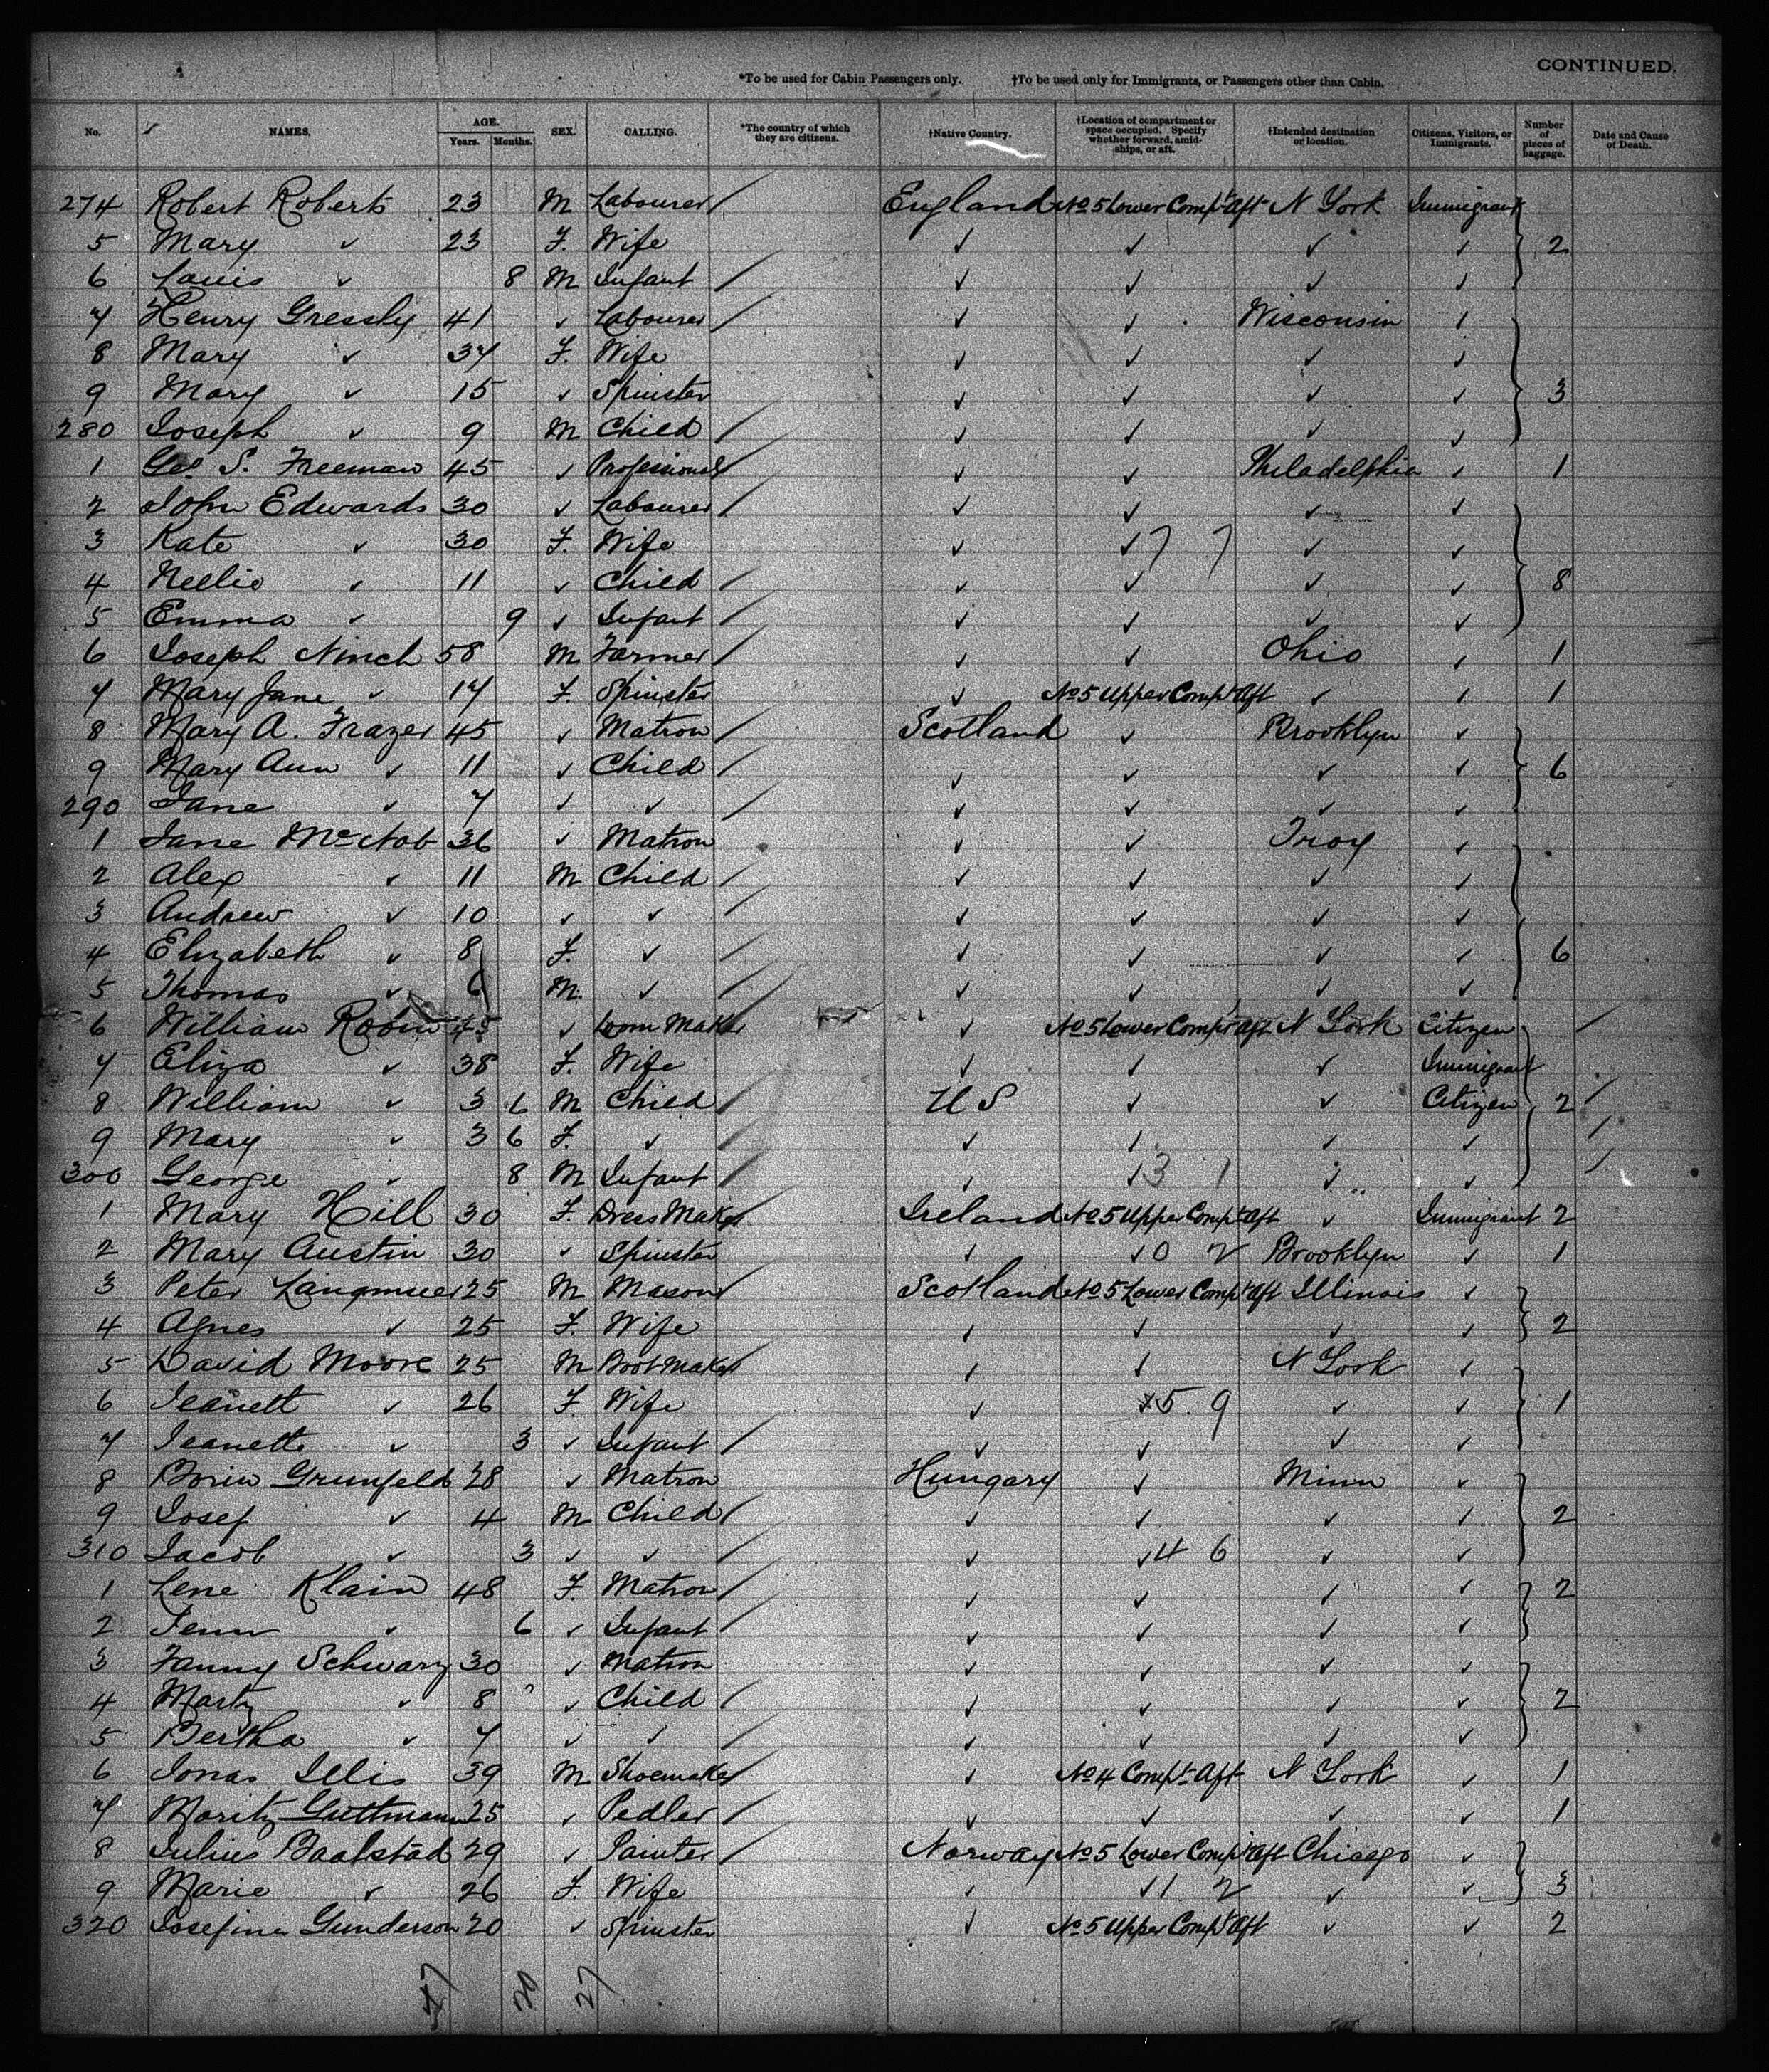 CONTINUED.
*To be used for Cabin Passengers only. †To be used only for Immigrants, or Passengers other than Cabin.
No. NAMES. AGE. Years. Months. SEX. CALLING. *The country of which they are citizens. †Native Country. †Location of compartment or space occupied. Specify whether forward, amidships, or aft. †Intended destination or location. Citizens, Visitors, or Immigrants. Number of pieces of baggage. Date and Cause of Death.
274 Robert Roberts 23 M Labourer / England No 5 Lower Compt Aft N York Immigrant
5 Mary ✓ 23 F. Wife ✓ ✓ ✓ ✓ 2
6 Louis ✓ 8 M Infant / ✓ ✓ ✓ ✓
7 Henry Gressly 41 ✓ Labourer / ✓ ✓ Wisconsin ✓
8 Mary ✓ 37 F. Wife ✓ ✓ ✓ ✓
9 Mary ✓ 15 ✓ Spinster ✓ ✓ ✓ ✓ 3
280 Joseph ✓ 9 M Child / ✓ ✓ ✓ ✓
1 Geo S. Freeman 45 ✓ Professional / ✓ ✓ Philadelphia ✓ 1
2 John Edwards 30 ✓ Labourer / ✓ ✓ ✓ ✓
3 Kate ✓ 30 F. Wife ✓ ✓ 7 7 ✓ ✓
4 Nellie ✓ 11 ✓ Child / ✓ ✓ ✓ ✓ 8
5 Emma ✓ 9 ✓ Infant / ✓ ✓ ✓ ✓
6 Joseph Ninch 58 M Farmer / ✓ ✓ Ohio ✓ 1
7 Mary Jane ✓ 17 F. Spinster ✓ No 5 Upper Compt Aft ✓ ✓ 1
8 Mary A. Frazer 45 ✓ Matron / Scotland ✓ Brooklyn ✓
9 Mary Ann ✓ 11 ✓ Child / ✓ ✓ ✓ ✓ 6
290 Jane ✓ 7 ✓ ✓ / ✓ ✓ ✓ ✓
1 Jane McNab 36 ✓ Matron ✓ ✓ Troy ✓
2 Alex ✓ 11 M Child / ✓ ✓ ✓ ✓
3 Andrew ✓ 10 ✓ ✓ / ✓ ✓ ✓ ✓
4 Elizabeth ✓ 8 F. ✓ / ✓ ✓ ✓ ✓ 6
5 Thomas ✓ 6 M. ✓ / ✓ ✓ ✓ ✓
6 William Robin ✓ Loom Maker ✓ No 5 Lower Compt Aft N York Citizen /
7 Eliza ✓ 38 F. Wife ✓ ✓ ✓ Immigrant
8 William ✓ 3 6 M Child / U S ✓ ✓ Citizen 2 /
9 Mary ✓ 3 6 F. ✓ / ✓ ✓ ✓ ✓ /
300 George ✓ 8 M Infant / ✓ ✓ 3 1 ✓ ✓ /
1 Mary Hill 30 F. Dress Maker Ireland No 5 Upper Compt Aft ✓ Immigrant 2
2 Mary Austin 30 ✓ Spinster ✓ ✓ 0 2 Brooklyn ✓ 1
3 Peter Langmuer 25 M Mason / Scotland No 5 Lower Compt Aft Illinois ✓
4 Agnes ✓ 25 F. Wife ✓ ✓ ✓ ✓ 2
5 David Moore 25 M Boot Maker / ✓ ✓ N York ✓
6 Jeanett ✓ 26 F. Wife ✓ ✓ 5. 9 ✓ ✓ 1
7 Jeanette ✓ 3 ✓ Infant / ✓ ✓ ✓ ✓
8 Grunfeld 28 ✓ Matron Hungary ✓ Minn ✓
9 Josef ✓ 4 M Child / ✓ ✓ ✓ ✓ 2
310 Jacob ✓ 3 ✓ ✓ / ✓ ✓ 4 6 ✓ ✓
1 Lene Klain 48 F. Matron / ✓ ✓ ✓ ✓ 2
2 ✓ 6 ✓ Infant / ✓ ✓ ✓ ✓
3 Fanny Schwarz 30 ✓ Matron ✓ ✓ ✓ ✓
4 Martz ✓ 8 ✓ Child / ✓ ✓ ✓ ✓ 2
5 Bertha ✓ 7 ✓ ✓ / ✓ ✓ ✓ ✓
6 Jonas Illis 39 M Shoemaker / ✓ No 4 Compt Aft N York ✓ 1
7 Moritz Guttmann 25 ✓ Pedler / ✓ ✓ ✓ ✓ 1
8 Julius Baalstad 29 ✓ Painter / Norway No 5 Lower Compt Aft Chicago ✓
9 Marie ✓ 26 F. Wife ✓ ✓ 1 2 ✓ ✓ 3
320 Josefine Gunderson 20 ✓ Spinster ✓ No 5 Upper Compt Aft ✓ ✓ 2
47 20 27